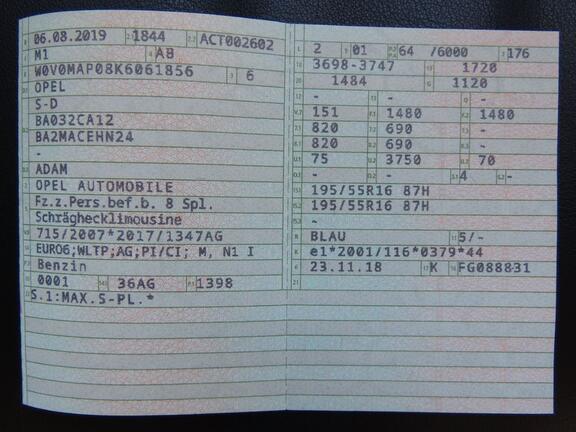 06.08.2019 1844 ACT002602
M1 AB
W0V0MAP08K6061856 6
OPEL
S-D
BA032CA12
BA2MACEHN24
-
ADAM
OPEL AUTOMOBILE
Fz.z.Pers.bef.b. 8 Spl.
Schräghecklimousine
715/2007*2017/1347AG
EURO6;WLTP;AG;PI/CI; M, N1 I
Benzin
0001 36AG 1398
S.1:MAX.S-PL.*
2 01 64 /6000 176
3698-3747 1720
1484 1120
- - -
151 1480 1480
820 690 -
820 690 -
75 3750 70
- - 4 -
195/55R16 87H
195/55R16 87H
-
BLAU 5/-
e1*2001/116*0379*44
23.11.18 K FG088831